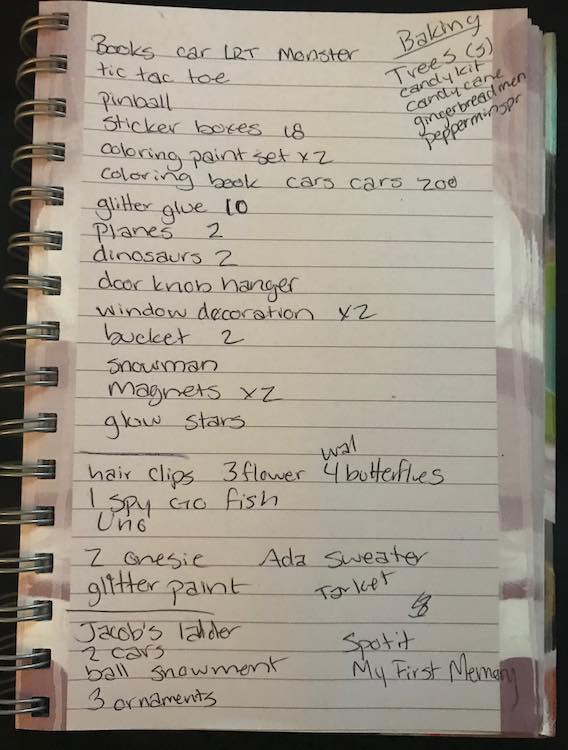 Baking
Trees (5)
candy kit
candy cane
gingerbread men
Books car LRT Monster
tic tac toe
pinball
sticker boxes 18
coloring paint set x2
coloring book cars cars 200
glitter glue 10
Planes 2
dinosaurs 2
door knob hanger
window decoration x2
bucket 2
snowman
Magnets x2
glow stars
wal
hair clips 3 flower 4 butterflies
I Spy Go fish
Uno
2 onesie Ada sweater
glitter paint Tarket
Jacob's ladder
2 cars Spot it
ball snowment My First Memory
3 ornaments